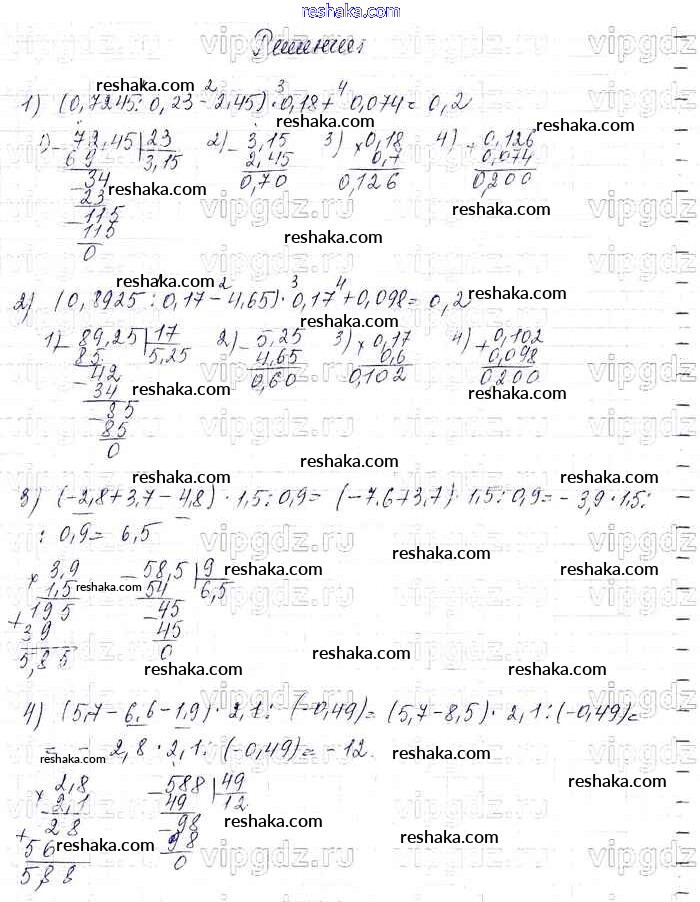 reshaka.com
Решение:
1) (0,7245 : 0,23 − 2,45) · 0,18 + 0,074 = 0,2
1) 72,45 | 23   2) − 3,15   3) × 0,18   4) + 0,126
69   3,15   2,45   0,7   0,074
34   0,70   0,126   0,200
23
115
115
0
2) (0,8925 : 0,17 − 4,65) · 0,17 + 0,098 = 0,2
1) 89,25 | 17   2) − 5,25   3) × 0,17   4) + 0,102
85   5,25   4,65   0,6   0,098
42   0,60   0,102   0,200
34
85
85
0
3) (−2,8+3,7−4,8) · 1,5 : 0,9 = (−7,6+3,7) · 1,5 : 0,9 = − 3,9 · 1,5 :
: 0,9 = 6,5
× 3,9   − 58,5 | 9
1,5   54   6,5
+ 195   − 45
39   45
5,85   0
4) (5,7 − 6,6 − 1,9) · 2,1 : (−0,49) = (5,7 − 8,5) · 2,1 : (−0,49) =
= − 2,8 · 2,1 : (−0,49) = −12.
× 2,8   − 588 | 49
2,1   49   12
+ 28   − 98
56   98
588   0